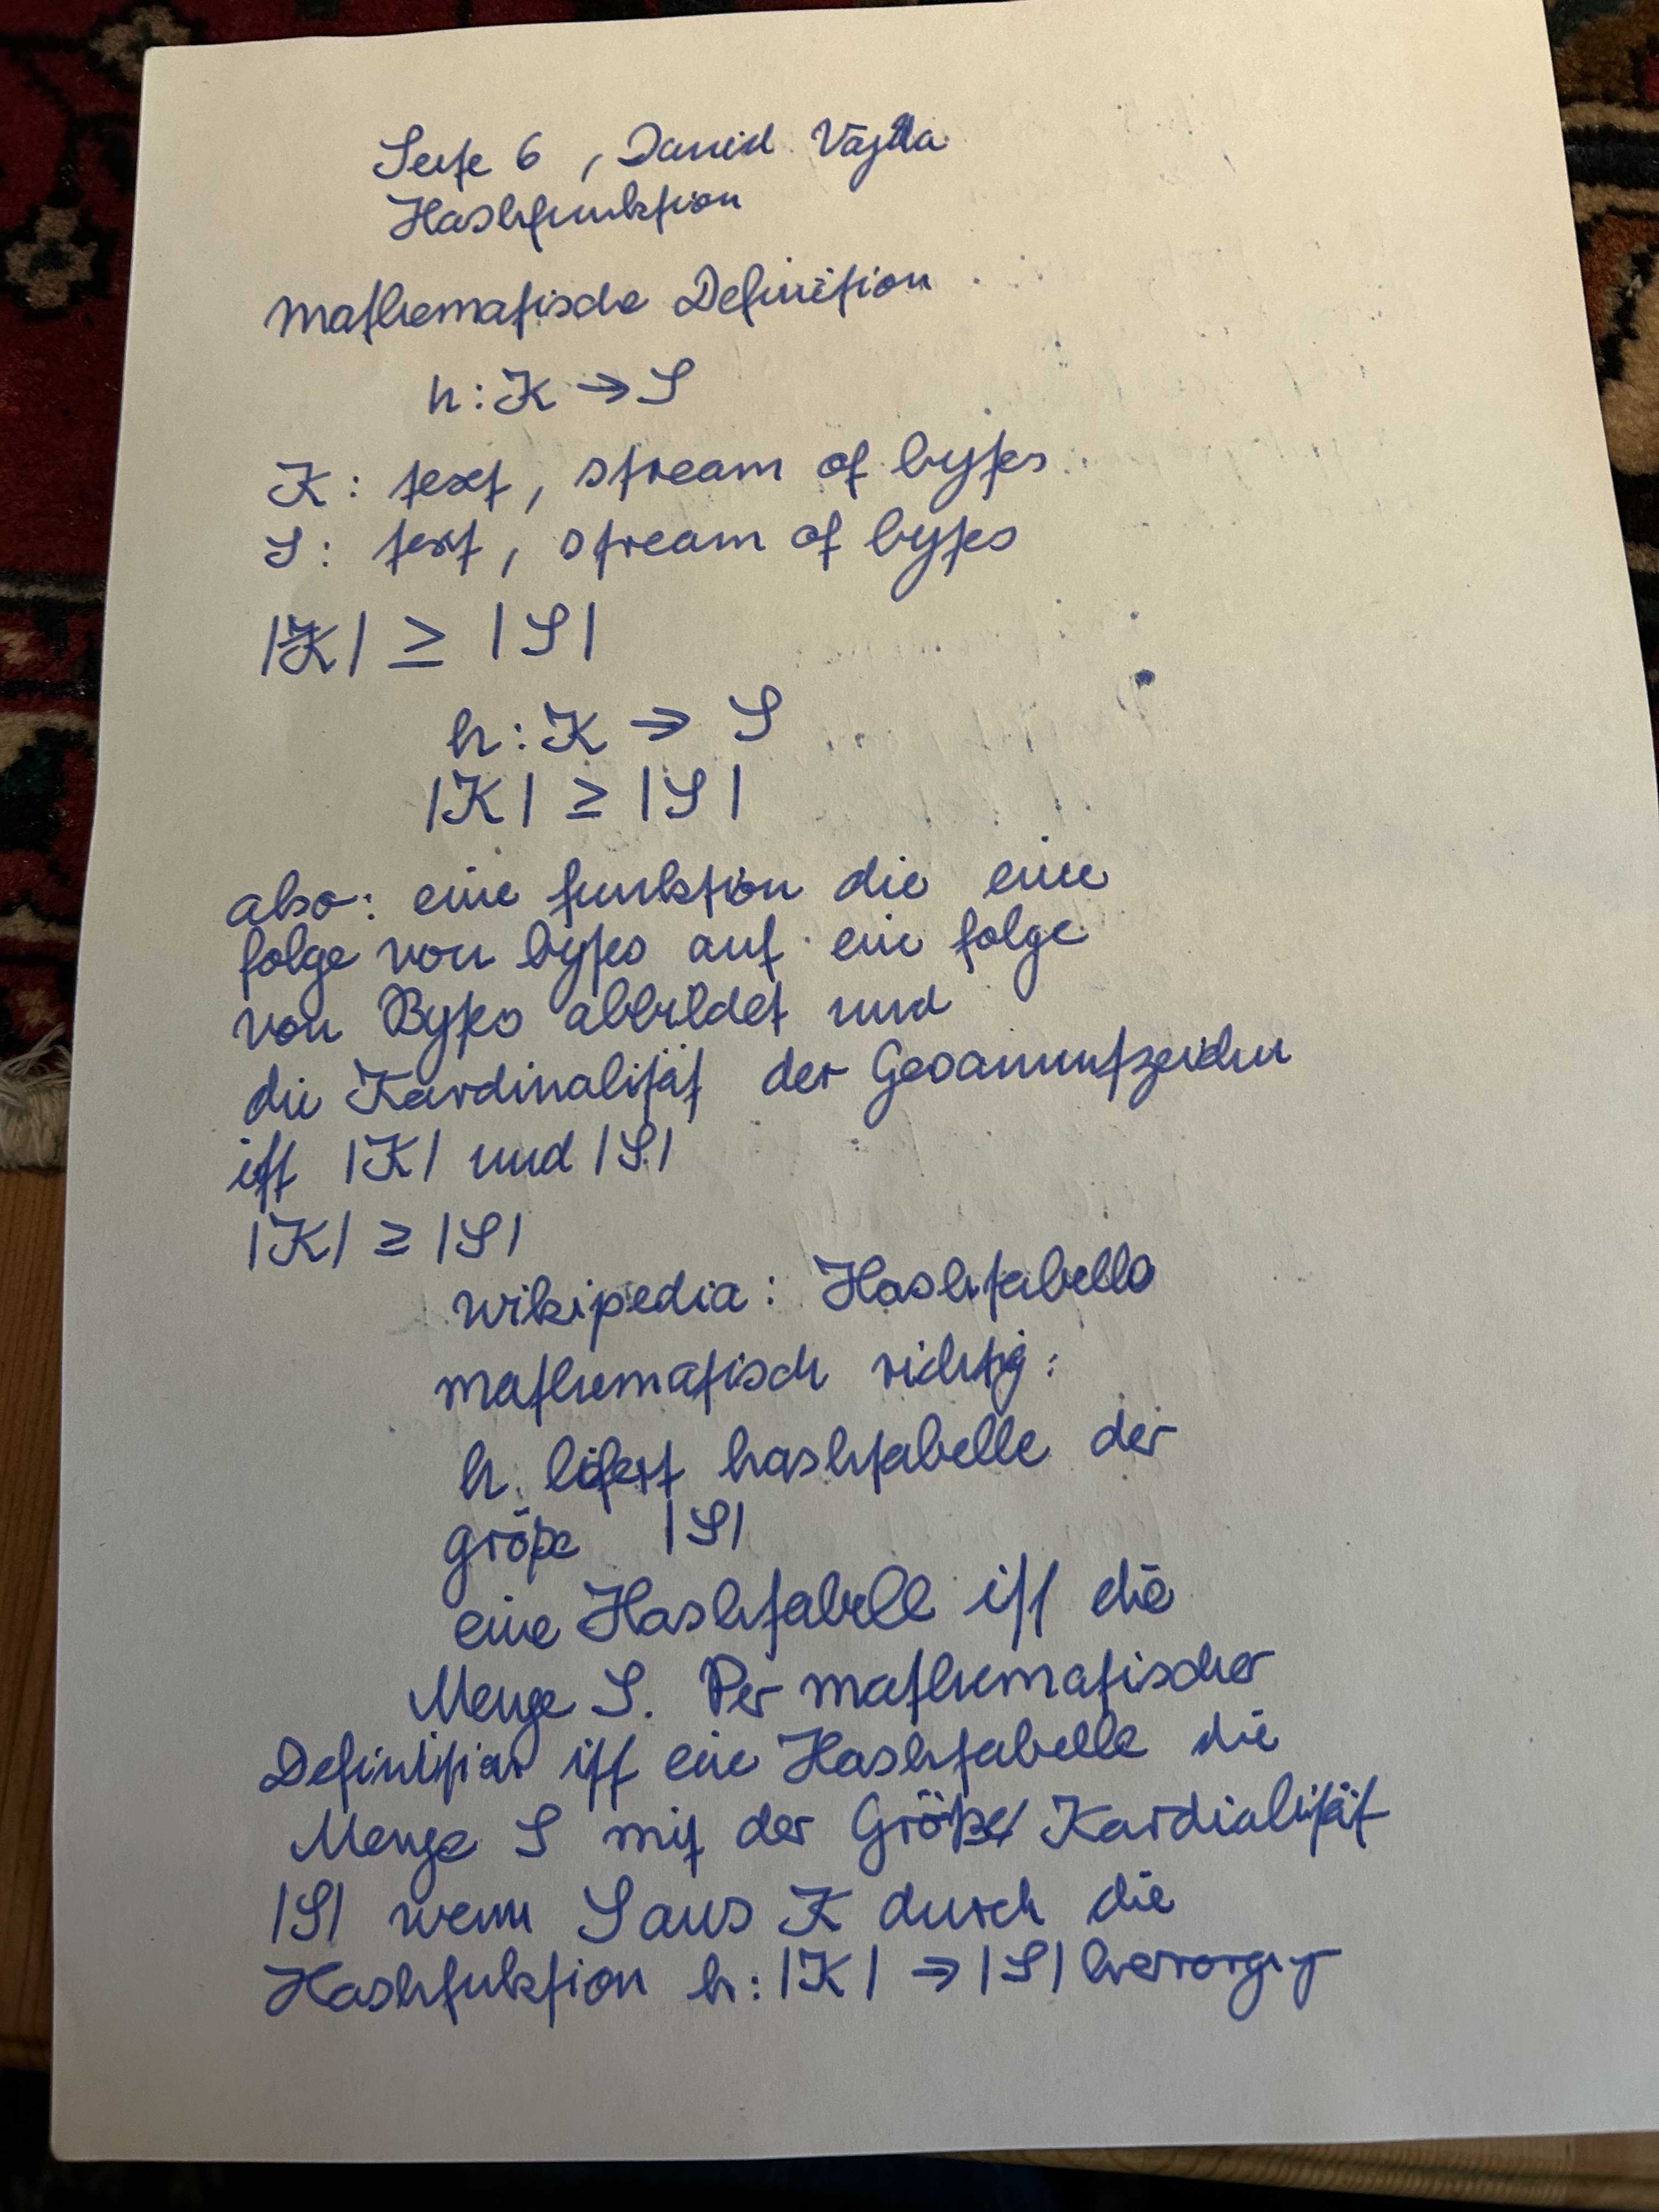 Seite 6, David Vajda
Hashfunktion
Mathematische Definition
h: K → S
K: text, stream of bytes
S: text, stream of bytes
|K| ≥ |S|
h: K → S
|K| ≥ |S|
also: eine funktion die eine
folge von bytes auf eine folge
von Bytes abbildet und
die Kardinalität der Gesamtzeichen
ist |K| und |S|
|K| ≥ |S|
Wikipedia: Hashtabelle
mathematisch richtig:
h liefert hashtabelle der
größe |S|
eine Hashtabelle ist die
Menge S. Per mathematischer
Definition ist eine Hashtabelle die
Menge S mit der Größe/Kardialität
|S| wenn S aus K durch die
Hashfuktion h: |K| → |S|